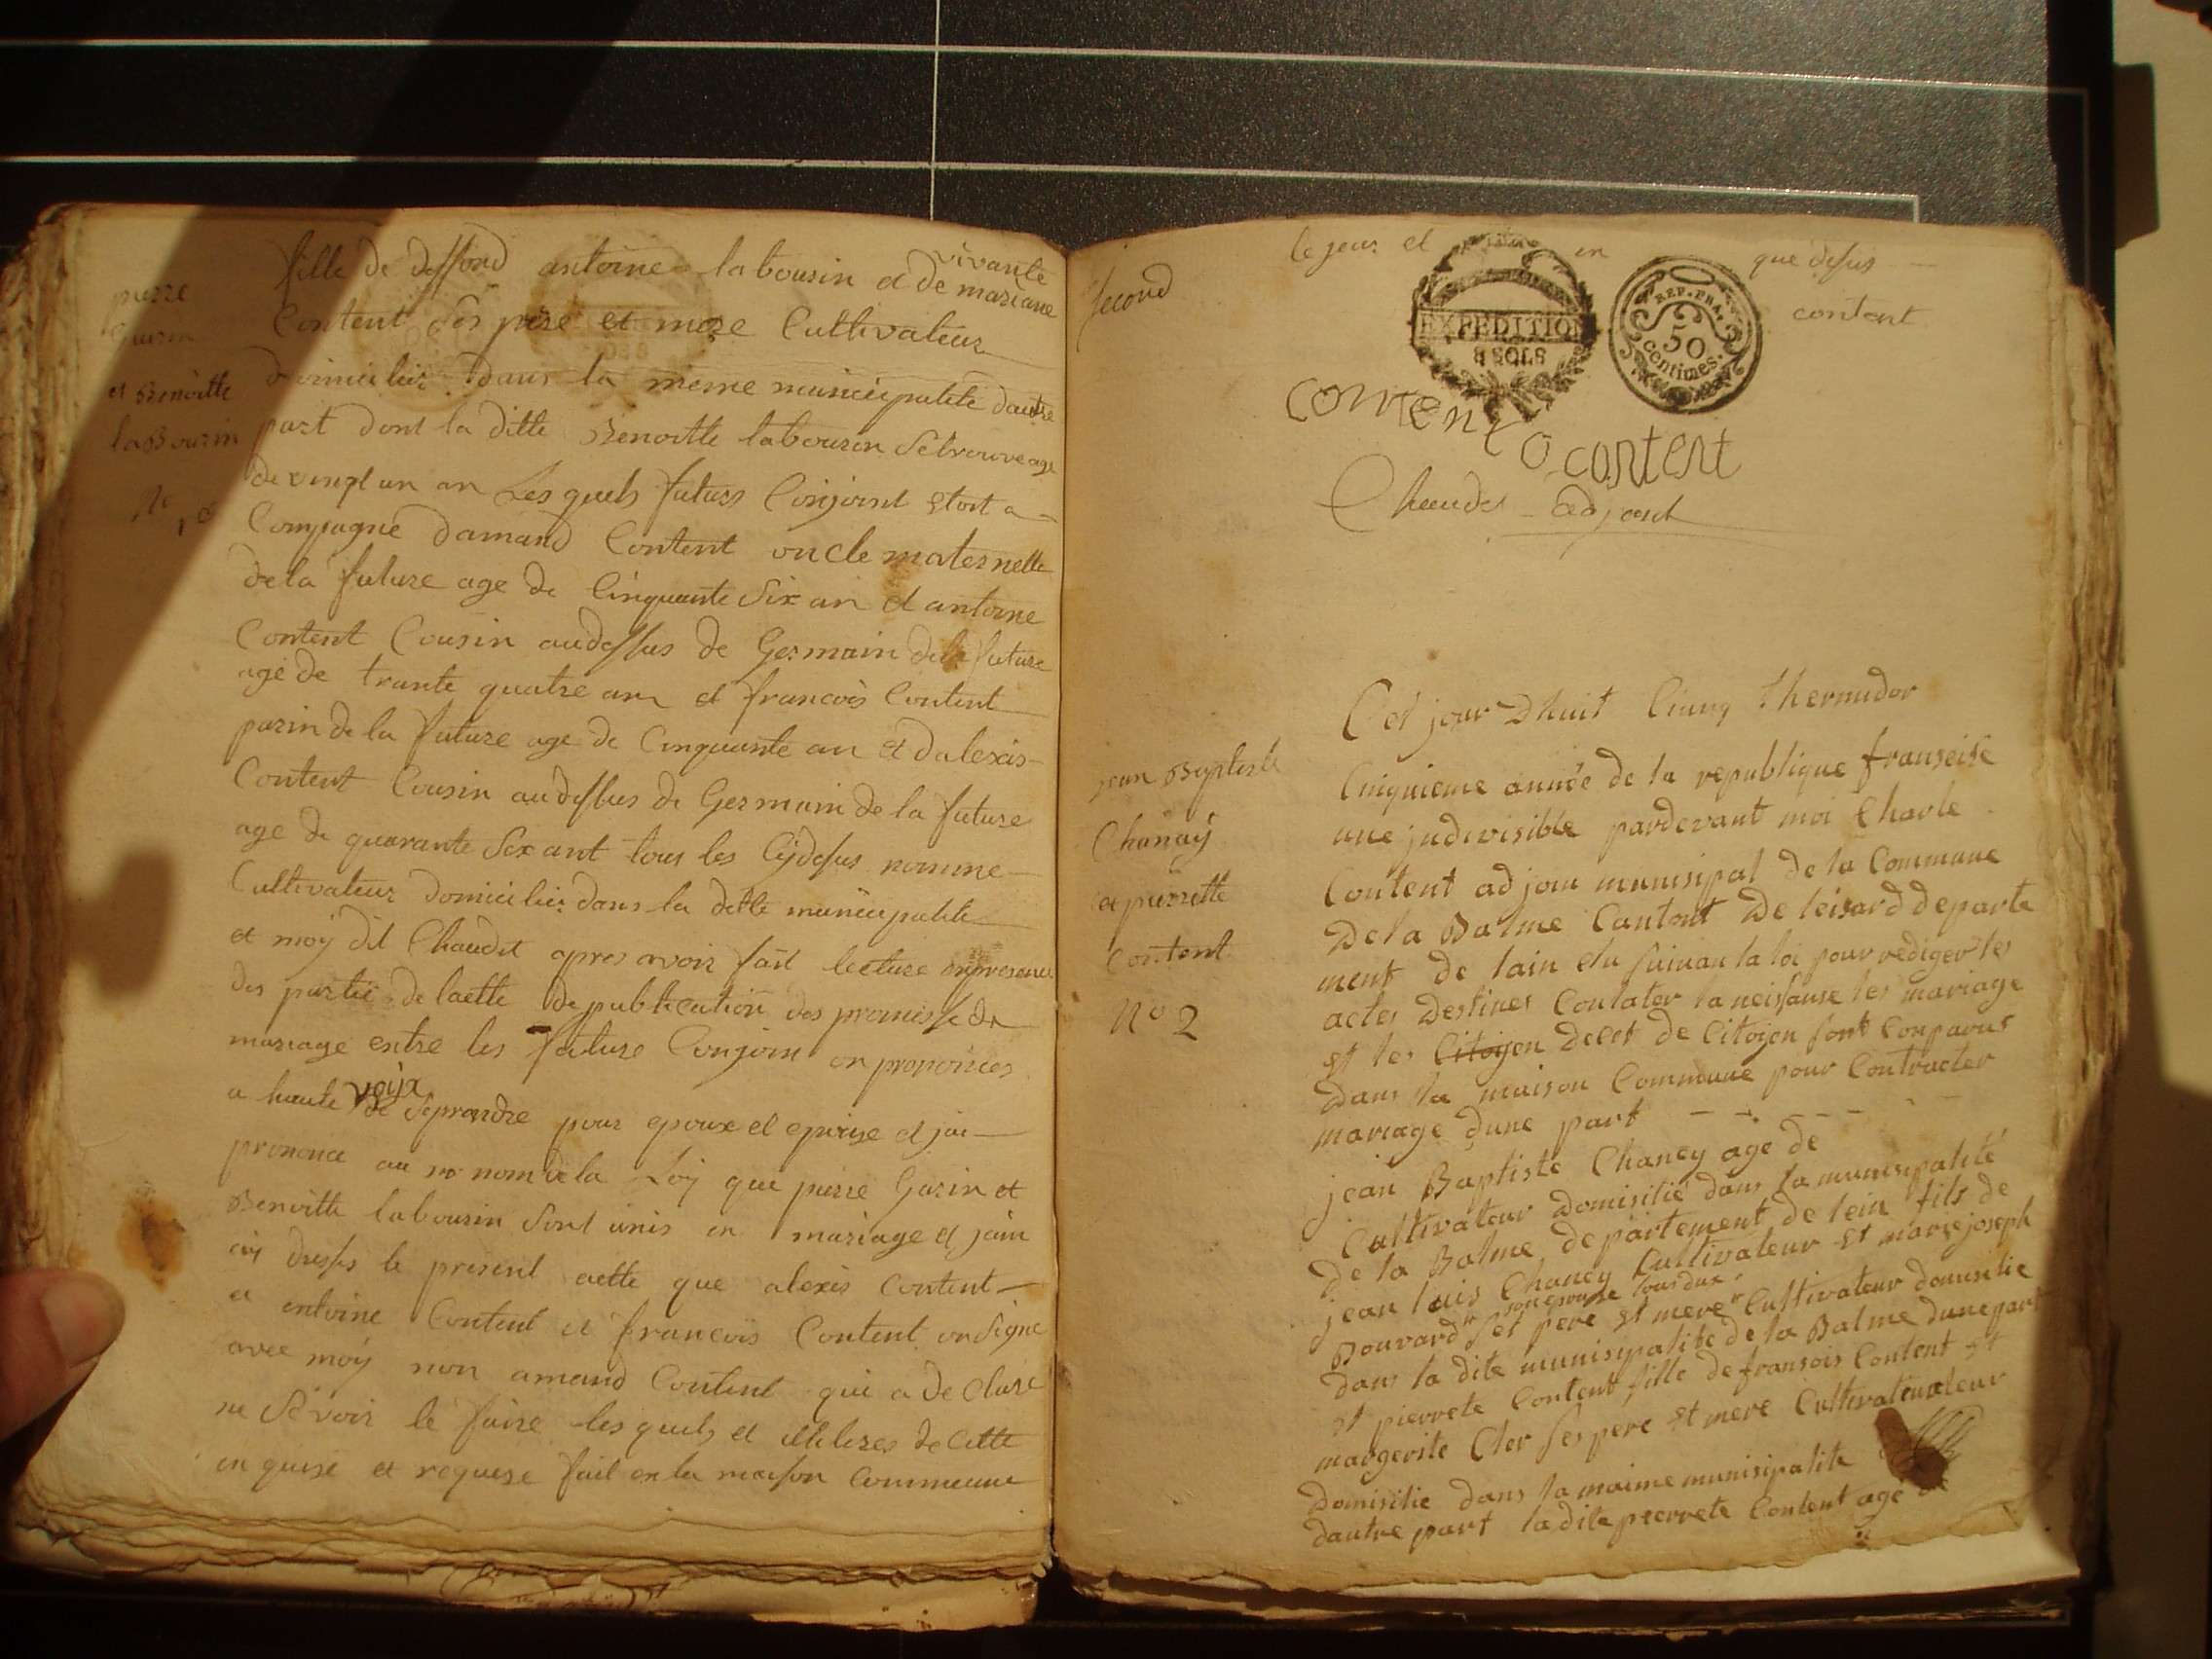 pierre
Guerin
et Benoitte
laBousin
fille de deffond antoine labousin et de mariane
vivante
Content Ses pere et mere Cultivateur
domicilié dans la meme municipalité dautre
part dont la ditte Benoitte labousin Setrouve age
de vingt un an Lesquels futurs Conjoint Etant a
Compagne damand Content oncle maternelle
dela future age de Cinquante Six an et antoine
Content Cousin audessus de Germain dela future
age de trante quatre an et francois Content
parin de la future age de Cinquante an et dalexis
Content Cousin audessus de Germain de la future
age de quarante Sex ant tous les Cydesus nomme
Cultivateur domicilié dans la ditte municipalité
et moy dit Chaudet apres avoir fait lecture enpresence
des partie de lactte de publication des promesse de
mariage entre les future Conjoin on prononces
a haute voix de Seprandre pour epoux et epouse et jai
prononce au no nom de la Loy que pierre Garin et
Benoitte labousin Sont unis en mariage et jain
ay dresses le present actte que alexis Content
et antoine Content et francois Content on Signe
avec moy non amand Content qui a de Clare
ne Sévoir le faire lesquels et illiteres de Cette
en quise et requise fait en la maison Commune
Second
le jour et an que desus
content
EXPEDITION
REP. FRA.
50
centimes.
content
o content
Chaudet adjoint
Cet jour Dhuit Cinq Thermidor
Cinquieme année de la republique franseise
une jndivisible pardevant moi Charle
Content adjoin munisipal de la Commune
De la Balme Cantont De leisard departe
ment de lain elu suivan la loi pour rediger les
actes Destines Contater la neissanse les mariage
et les Citoyen decet de Citoyen sont Conparus
Dans la maison Commune pour Contracter
mariage dune part
jean Baptiste
Chanay
et pierrette
Content
No 2
jean Baptiste Chaney age de
Cultivateur Domisilié dans la munisipalité
De la Balme departement de lein fils de
jean luis Chaney Cultivateur et marie joseph
Bouvard son epouse tous dux Ses pere et mere Cultivateur domisilie
dans la dite munisipalite de la Balme dune part
et pierrete Content fille de fransois Content et
margerite Cler Ses pere et mere Cultivatiuateur
Domisilie dans la maime munisipalite
dautre part ladite pierrete Content age de